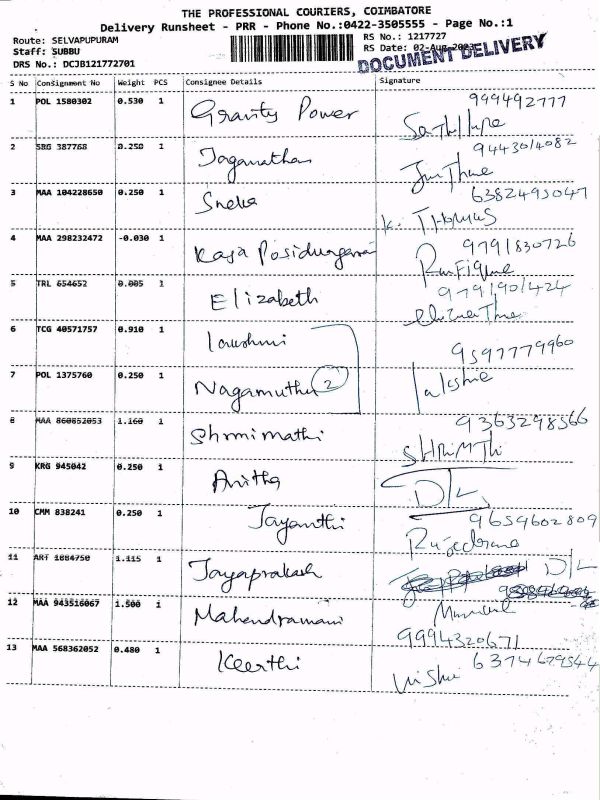 THE PROFESSIONAL COURIERS, COIMBATORE
Delivery Runsheet - PRR - Phone No.:0422-3505555 - Page No.:1
Route: SELVAPUPURAM
RS No.: 1217727
Staff: SUBBU
RS Date: 02-Aug-2023
DOCUMENT DELIVERY
DRS No.: DCJB121772701
S No Consignment No Weight PCS Consignee Details Signature
1 POL 1580302 0.530 1 Gravity Power 999492777
2 SRG 387768 0.250 1 Jaganathan 9443014082
3 MAA 104228650 0.250 1 Sneha 6382493047
K. THOMAS
4 MAA 298232472 -0.030 1 9791830726
5 TRL 654652 0.005 1 Elizabeth 9791901424
6 TCG 40571757 0.910 1 9597779960
7 POL 1375760 0.250 1 Nagamuthu 2
8 MAA 860852053 1.160 1 9363298566
SHRIMThi
9 KRG 945042 0.250 1 Anitha D/L
10 CMM 838241 0.250 1 Jayanthi 9659602809
11 ART 1884750 1.115 1 Jayaprakash D/L
12 MAA 943516067 1.500 1 Mahendramani
9994320671
13 MAA 568362052 0.480 1 Keerthi 6374679544